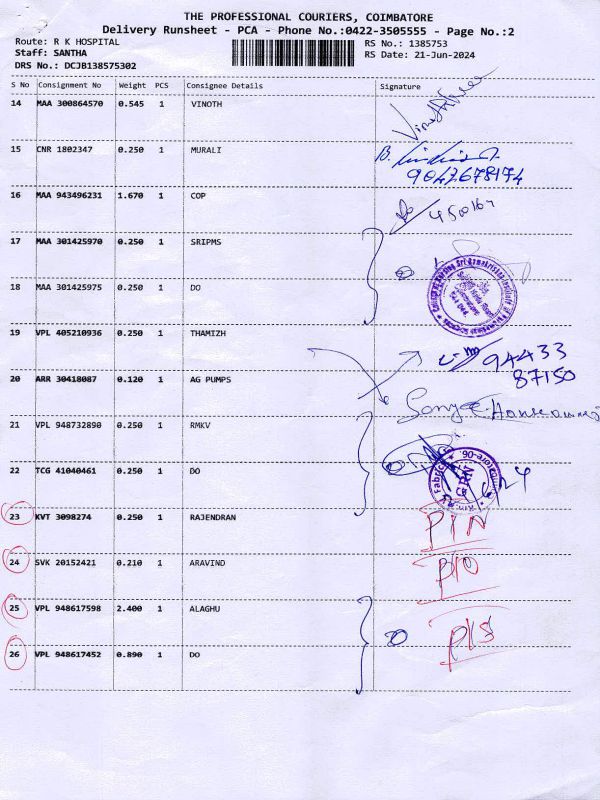 THE PROFESSIONAL COURIERS, COIMBATORE
Delivery Runsheet - PCA - Phone No.:0422-3505555 - Page No.:2
Route: R K HOSPITAL
RS No.: 1385753
Staff: SANTHA
RS Date: 21-Jun-2024
DRS No.: DCJB138575302
S No Consignment No Weight PCS Consignee Details Signature
14 MAA 300864570 0.545 1 VINOTH
15 CNR 1802347 0.250 1 MURALI
9047678174
16 MAA 943496231 1.670 1 COP
17 MAA 301425970 0.250 1 SRIPMS
18 MAA 301425975 0.250 1 DO
19 VPL 405210936 0.250 1 THAMIZH
94433
87150
20 ARR 30418087 0.120 1 AG PUMPS
21 VPL 948732890 0.250 1 RMKV
22 TCG 41040461 0.250 1 DO
GRN
23 KVT 3098274 0.250 1 RAJENDRAN
24 SVK 20152421 0.210 1 ARAVIND
25 VPL 948617598 2.400 1 ALAGHU
26 VPL 948617452 0.890 1 DO